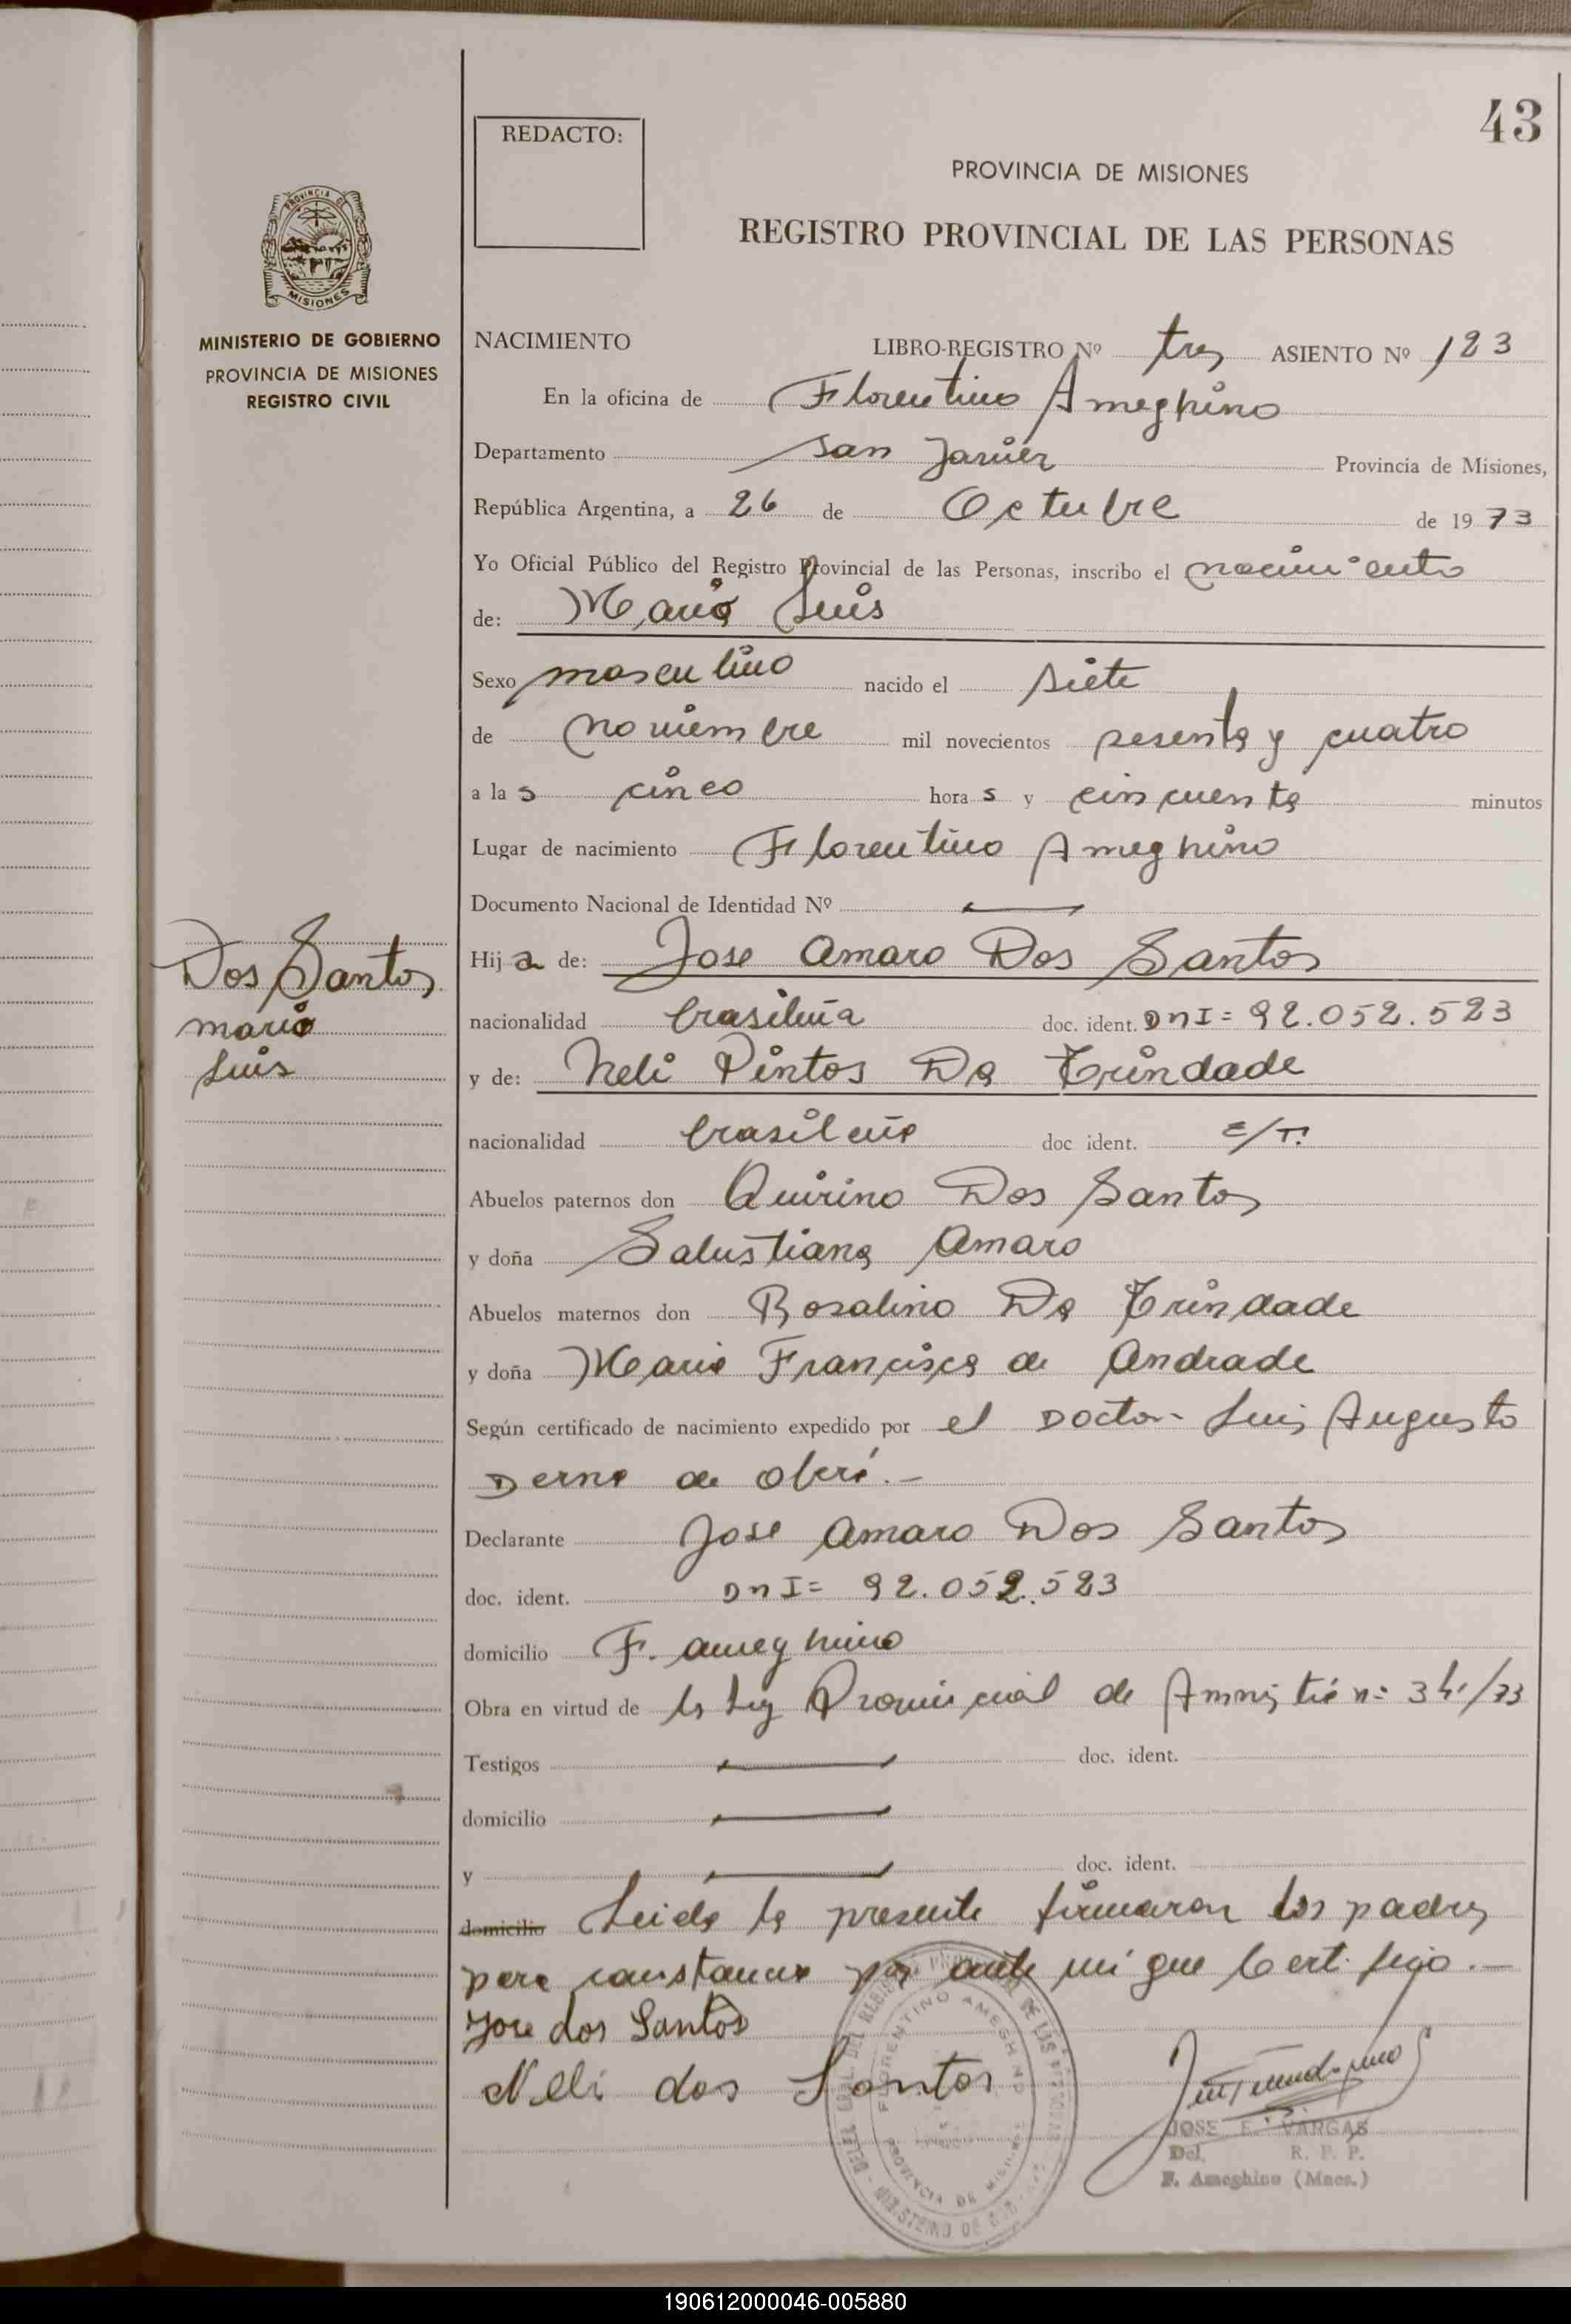 43
REDACTO:
PROVINCIA DE MISIONES
REGISTRO PROVINCIAL DE LAS PERSONAS
PROVINCIA DE
MISIONES
MINISTERIO DE GOBIERNO
PROVINCIA DE MISIONES
REGISTRO CIVIL
NACIMIENTO LIBRO-REGISTRO Nº tres ASIENTO Nº 123
En la oficina de Florentino Ameghino
Departamento San Javier Provincia de Misiones,
República Argentina, a 26 de Octubre de 1973
Yo Oficial Público del Registro Provincial de las Personas, inscribo el nacimiento
de: Mario Luis
Sexo masculino nacido el siete
de noviembre mil novecientos sesenta y cuatro
a las cinco horas y cincuenta minutos
Lugar de nacimiento Florentino Ameghino
Documento Nacional de Identidad Nº —
Dos Santos
mario
Luis
Hij a de: Jose Amaro Dos Santos
nacionalidad brasileña doc. ident. DNI= 92.052.523
y de: Neli Pintos Da Trindade
nacionalidad brasileña doc. ident. C/T.
Abuelos paternos don Quirino Dos Santos
y doña Salustiana Amaro
Abuelos maternos don Rosalino Da Trindade
y doña Maria Francisca de Andrade
Según certificado de nacimiento expedido por el Doctor Luis Augusto
Derna de Oberá.-
Declarante Jose Amaro Dos Santos
doc. ident. DNI= 92.052.523
domicilio F. Ameghino
Obra en virtud de la Ley Provincial de Amnistia n= 341/73
Testigos — doc. ident.
domicilio —
y — doc. ident.
domicilio Leida la presente firmaron los padres
para constancia por ante mi que Certifico.-
Jose dos Santos
Neli dos Santos
FLORENTINO AMEGHINO
PROVINCIA DE MISIONES
JOSE E. VARGAS
Del. R. P. P.
F. Ameghino (Mnes.)
190612000046-005880